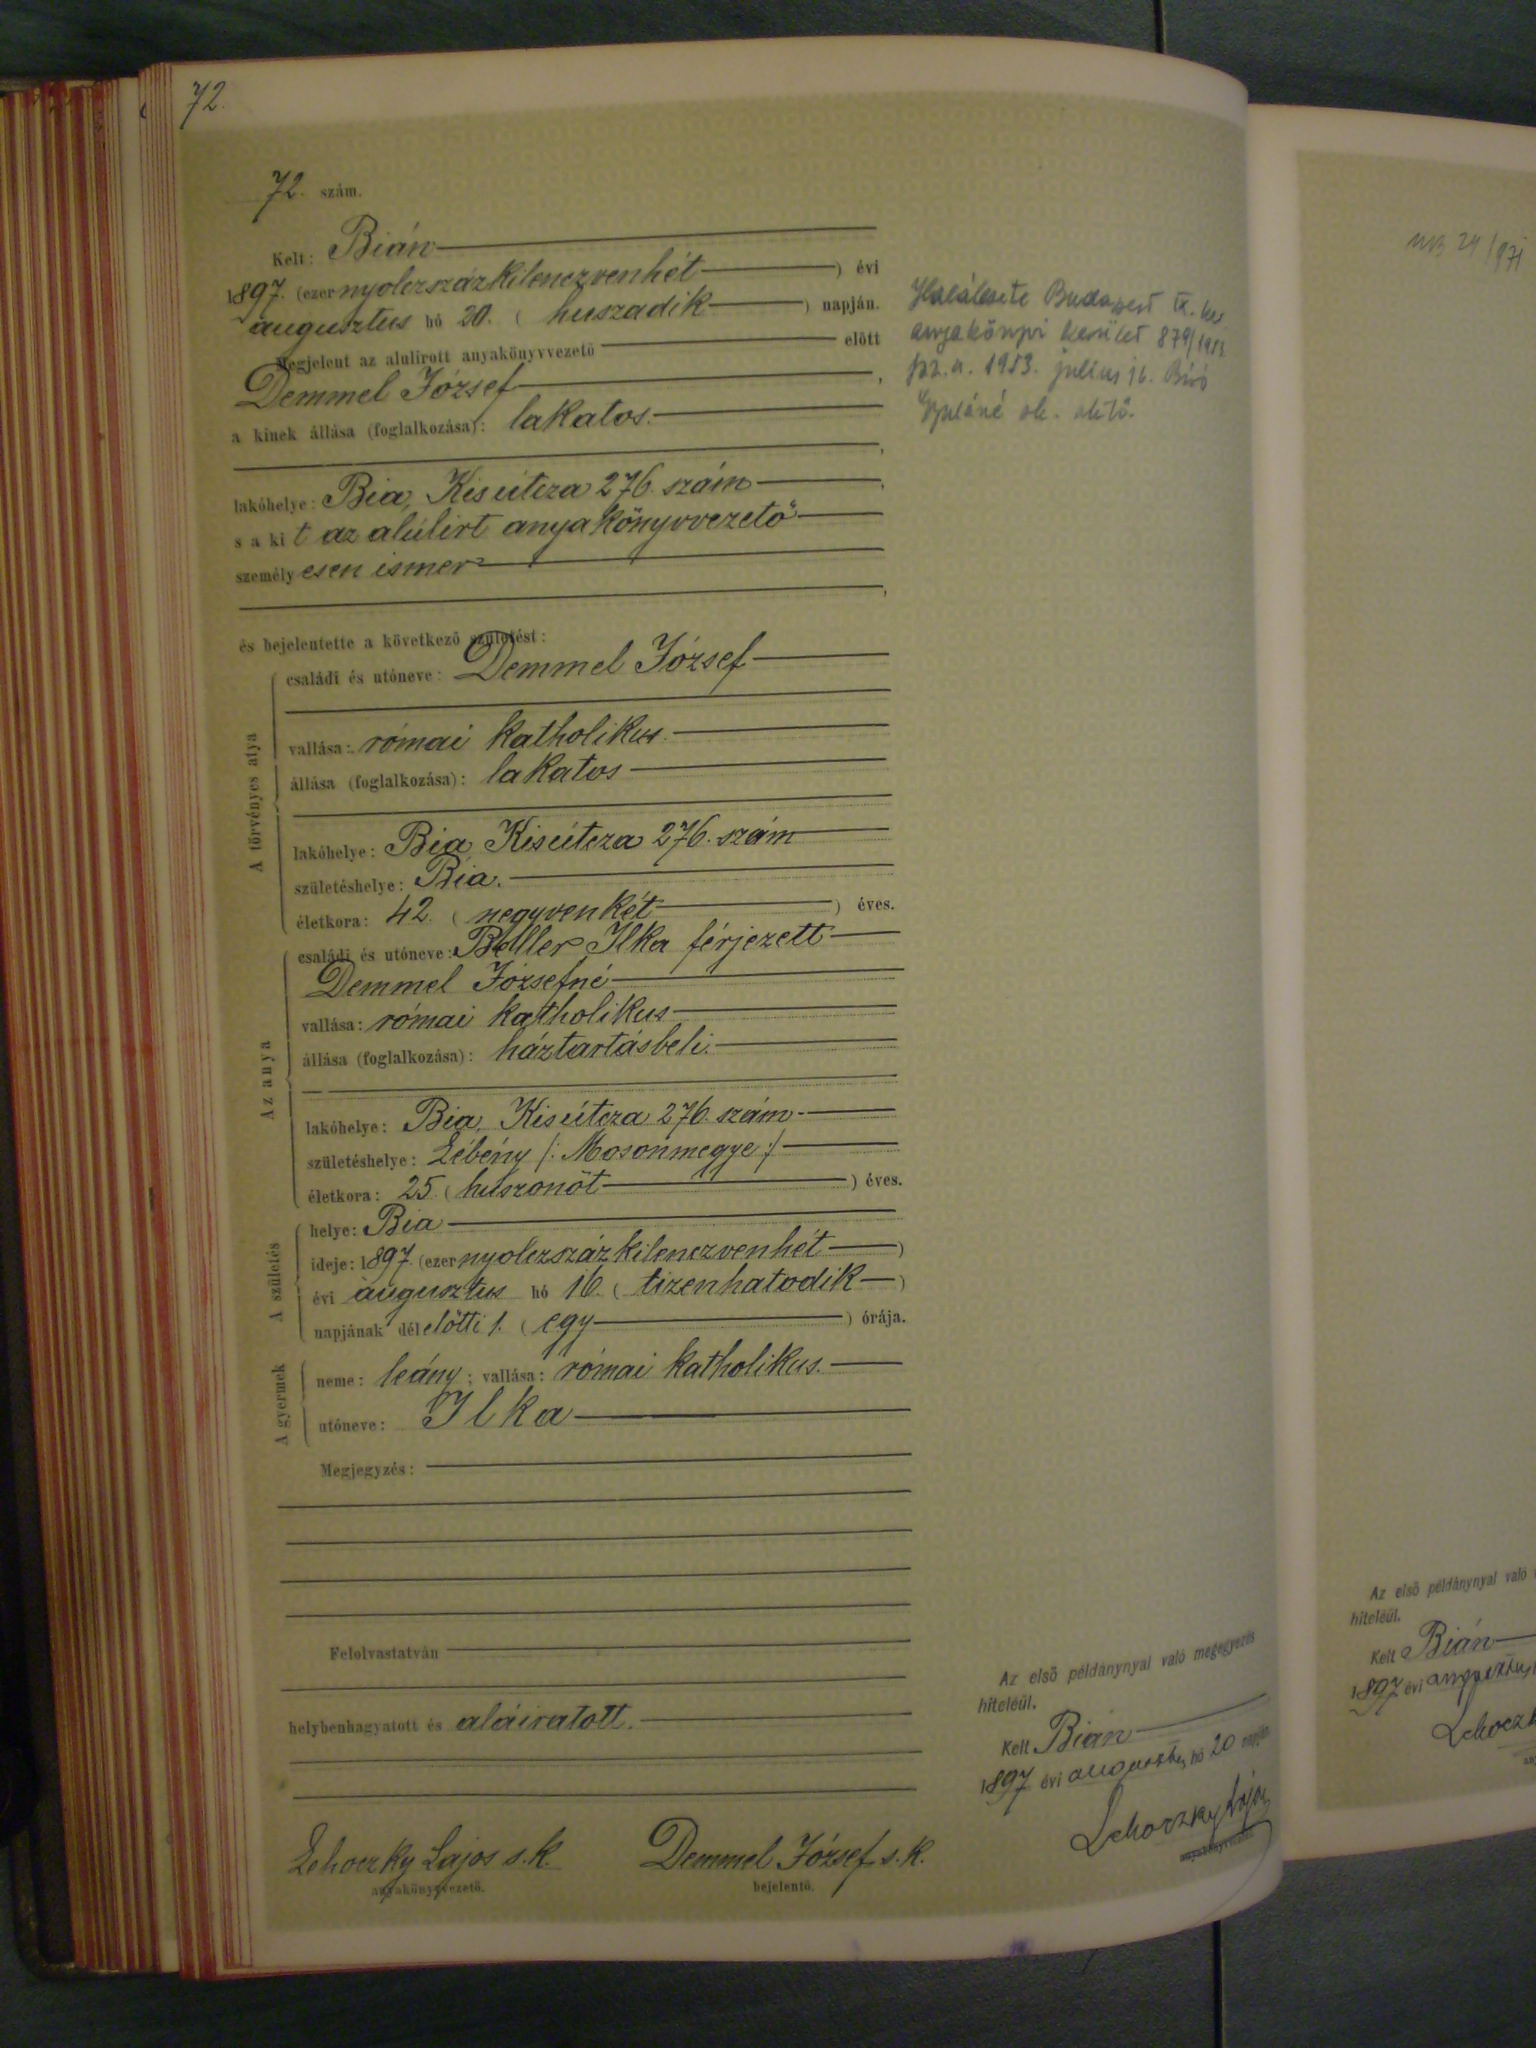 72.
72. szám.
Kelt: Bián
1897. (ezer nyolczszázkilenczvenhét) évi
augusztus hó 20. (huszadik) napján.
Megjelent az alulírott anyakönyvvezető előtt
Demmel József,
a kinek állása (foglalkozása): lakatos.
lakóhelye: Bia, Kisútcza 276. szám,
s a kit az alúlirt anyakönyvvezető
személyesen ismer,
és bejelentette a következő születést:
A törvényes atya
családi és utóneve: Demmel József
vallása: római katholikus.
állása (foglalkozása): lakatos
lakóhelye: Bia, Kisútcza 276. szám
születéshelye: Bia.
életkora: 42. (negyvenkét) éves.
Az anya
családi és utóneve: Beller Ilka férjezett
Demmel Józsefné
vallása: római katholikus
állása (foglalkozása): háztartásbeli.
lakóhelye: Bia, Kisútcza 276. szám
születéshelye: Lébény /: Mosonmegye :/
életkora: 25. (huszonöt) éves.
A születés
helye: Bia
ideje: 1897. (ezer nyolczszázkilenczvenhét)
évi augusztus hó 16. (tizenhatodik)
napjának délelőtti 1. (egy) órája.
A gyermek
neme: leány; vallása: római katholikus.
utóneve: Ilka
Megjegyzés:
Felolvastatván
helybenhagyatott és aláiratott.
Lehoczky Lajos s.k.
anyakönyvvezető.
Demmel József s.k.
bejelentő.
Halálesete Budapest IX. ker.
anyakönyvi kerület 879/1953.
sz. a. 1953. július 16. Bíró
Gyuláné
Az első példánynyal való megegyezés
hiteléül.
Kelt Bián
1897 évi augusztus hó 20 napján
Lehoczky Lajos
anyakönyvvezető.
24/971
Az első példánynyal való
hiteléül.
Kelt Bián
1897 évi augusztus
Lehoczk